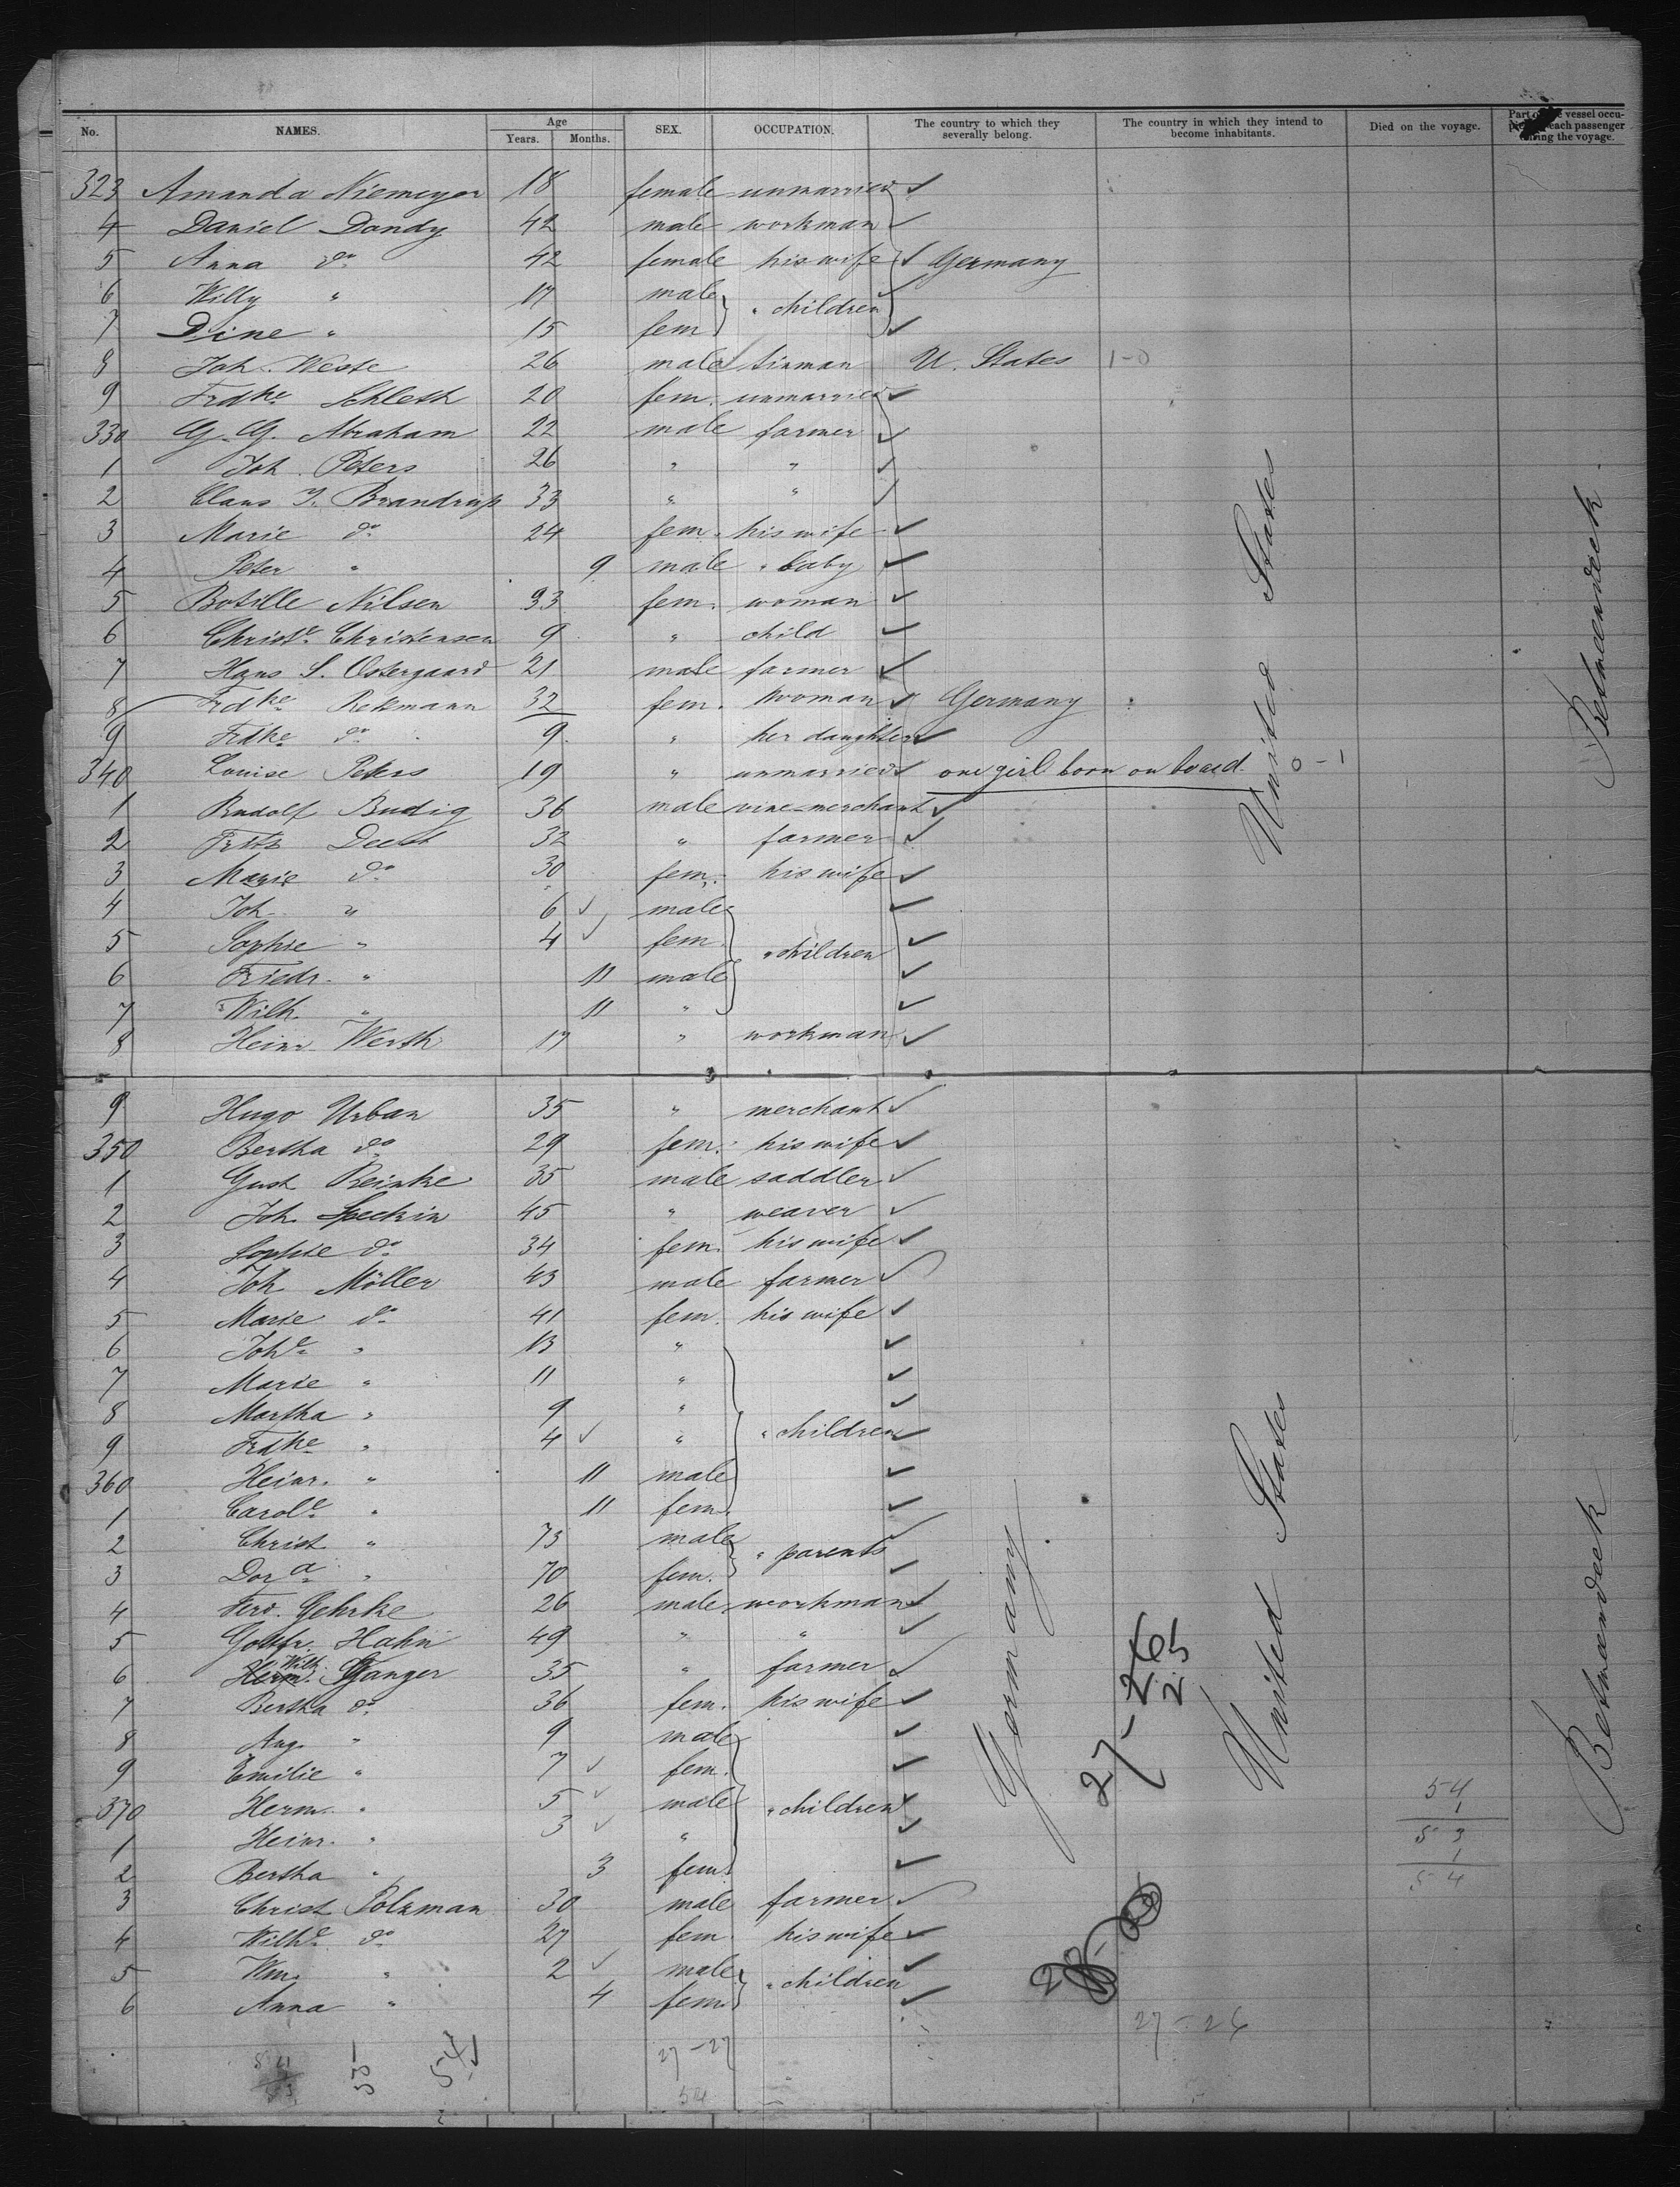 No. NAMES. Age Years. Months. SEX. OCCUPATION. The country to which they severally belong. The country in which they intend to become inhabitants. Died on the voyage. Part of the vessel occupied by each passenger during the voyage.
323 Amanda Niemeyer 18 female unmarried
4 Daniel Dandy 42 male workman
5 Anna do 42 female his wife Germany
6 Willy " 17 male " children
7 Dine " 15 fem
8 Joh. Weste 26 male tinman U. States 1-0
9 Frdke Schleth 20 fem. unmarried
330 G. G. Abraham 22 male farmer
1 Joh. Peters 26 " "
2 Claus J. Brandrup 33 " "
3 Marie do 24 fem. his wife
4 Peter " 9 male " baby
5 Botille Nilsen 33 fem. woman
6 Christe Christensen 9 " child
7 Hans S. Ostergaard 21 male farmer
8 Frdke Rekmann 32 fem. woman Germany
9 Frdke do 9 " her daughter
340 Louise Peters 19 " unmarried one girl born on board. 0-1
1 Rudolf Budig 36 male vine-merchant
2 Fritz Deest 32 " farmer
3 Marie do 30 fem. his wife
4 Joh. " 6 male
5 Sophie " 4 fem " children
6 Friedr. " 11 male
7 Wilh. " 11 "
8 Heinr. Werth 17 " workman
United States
Between deck
9 Hugo Urban 35 " merchant
350 Bertha do 29 fem. his wife
1 Gust. Reinke 35 male saddler
2 Joh. Speckin 45 " weaver
3 Sophie do 34 fem. his wife
4 Joh. Möller 43 male farmer
5 Marie do 41 fem. his wife
6 Johe " 13 "
7 Marie " 11 "
8 Martha " 9 "
9 Frdke " 4 " " children
360 Heinr. " 11 male
1 Carole " 11 fem.
2 Christ " 73 male " parents
3 Dora " 70 fem.
4 Ferd. Gehrke 26 male workman
5 Gottfr. Hahn 49 " "
6 Herm. Wilh. Ganger 35 " farmer
7 Bertha do 36 fem. his wife
8 Aug. " 9 male
9 Emilie " 7 fem.
370 Herm. " 5 male " children
1 Heinr. " 3 "
2 Bertha " 3 fem.
3 Christ Polzman 30 male farmer
4 Wilhe do 27 fem his wife
5 Wm. " 2 male " children
6 Anna " 4 fem.
Germany
27-26
25
United States
Between deck
54
1
53
1
54
27-26
27-27
54
54